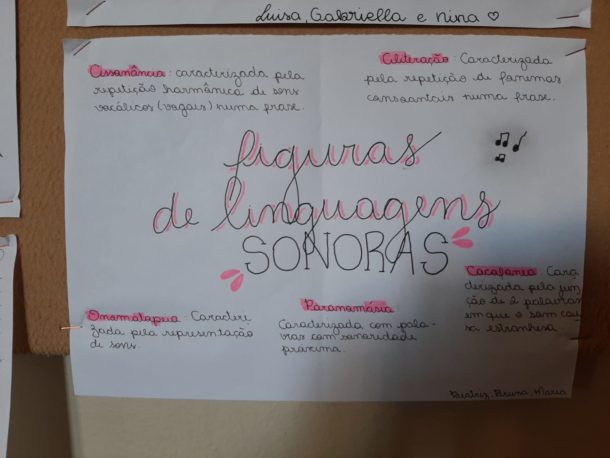 Luisa, Gabriella e Nina ♡
Assonância: caracterizada pela
repetição harmônica de sons
vocálicos (vogais) numa frase.
Aliteração: Caracterizada
pela repetição de fonemas
consoantais numa frase.
figuras
de linguagens
SONORAS
Onomatopeia: Caracteri
zada pela representação
de sons.
Paranomásia
Caracterizada com pala-
vras com sonoridade
próxima.
Cacofonia Cara
derizada pela jun
ção de 2 palavras
em que o som cau
sa estranheza.
Beatriz, Bruna, Maria